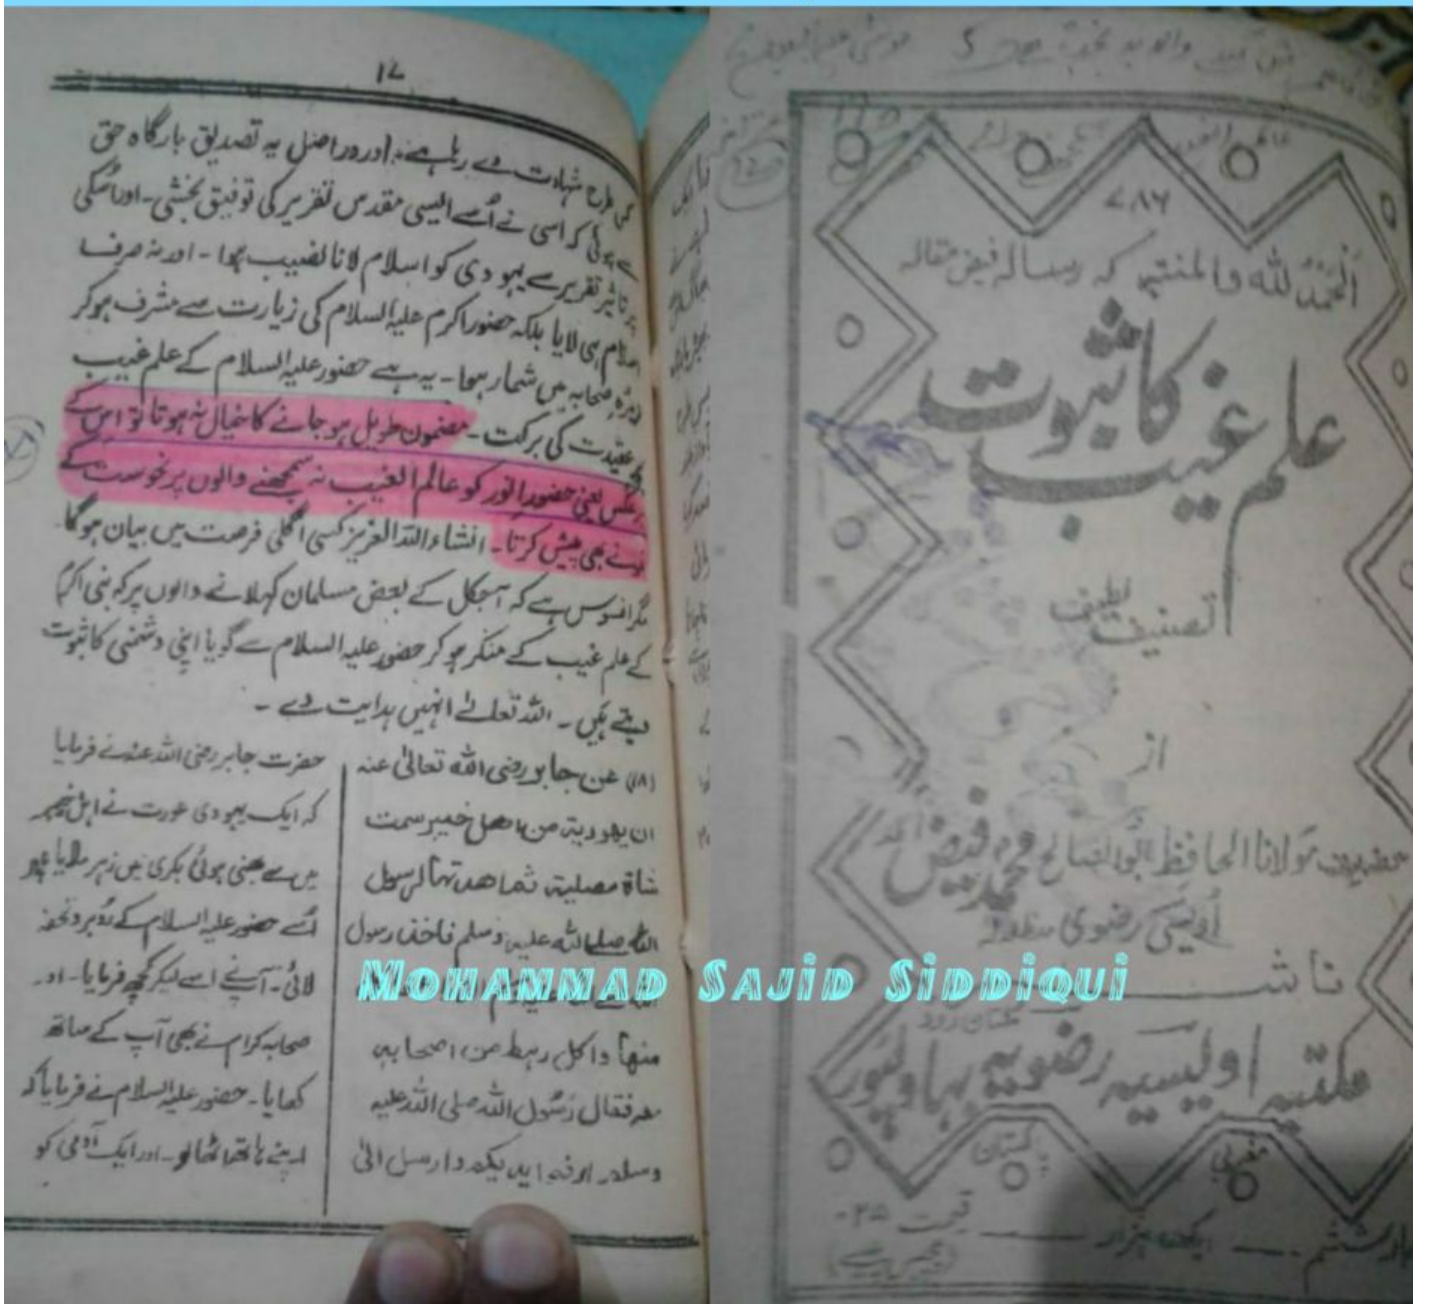 ۱۷
کی طرح شہادت دے رہا ہے اور دراصل یہ تصدیق بارگاہ حق
سے ہوئی کہ اسی نے اُسے ایسی مقدس تقریر کی توفیق بخشی۔ اور اسکی
پر تاثیر تقریر سے یہودی کو اسلام لانا نصیب ہوا۔ اور نہ صرف
اسلام ہی لایا بلکہ حضور اکرم علیہ السلام کی زیارت سے مشرف ہوکر
زمرۂ صحابہ میں شمار ہوا۔ یہ ہے حضور علیہ السلام کے علم غیب
عقیدت کی برکت۔ مضمون طویل ہو جانے کا خیال نہ ہوتا تو اس کے
عکس یعنی حضور انور کو عالم الغیب نہ سمجھنے والوں پر نحوست کے
نمونے بھی پیش کرتا۔ انشاء اللہ العزیز کسی اگلی فرصت میں بیان ہوگا۔
مگر افسوس ہے کہ آجکل کے بعض مسلمان کہلانے والوں پر کہ نبی اکرم
کے علم غیب کے منکر ہو کر حضور علیہ السلام سے گویا اپنی دشمنی کا ثبوت
دیتے ہیں۔ اللہ تعالےٰ انہیں ہدایت دے۔
(۱۸) عن جابر رضی الله تعالیٰ عنه
ان یهودیة من اهل خیبر سمت
شاة مصلیة ثم اهدتها لرسول
الله صلی الله علیه وسلم فاخذ رسول
منها واکل رهط من اصحابه
معه فقال رسول الله صلی الله علیه
وسلم ارفعوا ایدیکم وارسل الیٰ
حضرت جابر رضی اللہ عنہ نے فرمایا
کہ ایک یہودی عورت نے اہل خیبر
میں سے بھنی ہوئی بکری میں زہر ملایا پھر
اُسے حضور علیہ السلام کے روبرو تحفہ
لائی۔ آپ نے اسے لیکر کچھ فرمایا۔ اور
صحابہ کرام نے بھی آپ کے ساتھ
کھایا۔ حضور علیہ السلام نے فرمایا کہ
اپنے ہاتھ اٹھا لو۔ اور ایک آدمی کو
۷۸۶
اَلْحَمْدُ لِلّٰہ والمنتہ کہ رسالہ فیض مقالہ
علم غیب کا ثبوت
تصنیف لطیف
از
مولانا الحافظ ابوالصالح محمد فیض احمد
اُویسی رضوی مدظلہ
ناشر
ملتان روڈ
مکتبہ اویسیہ رضویہ بہاولپور
مغربی پاکستان
بار ششم ایک ہزار قیمت ۲۵-
Mohammad Sajid Siddiqui